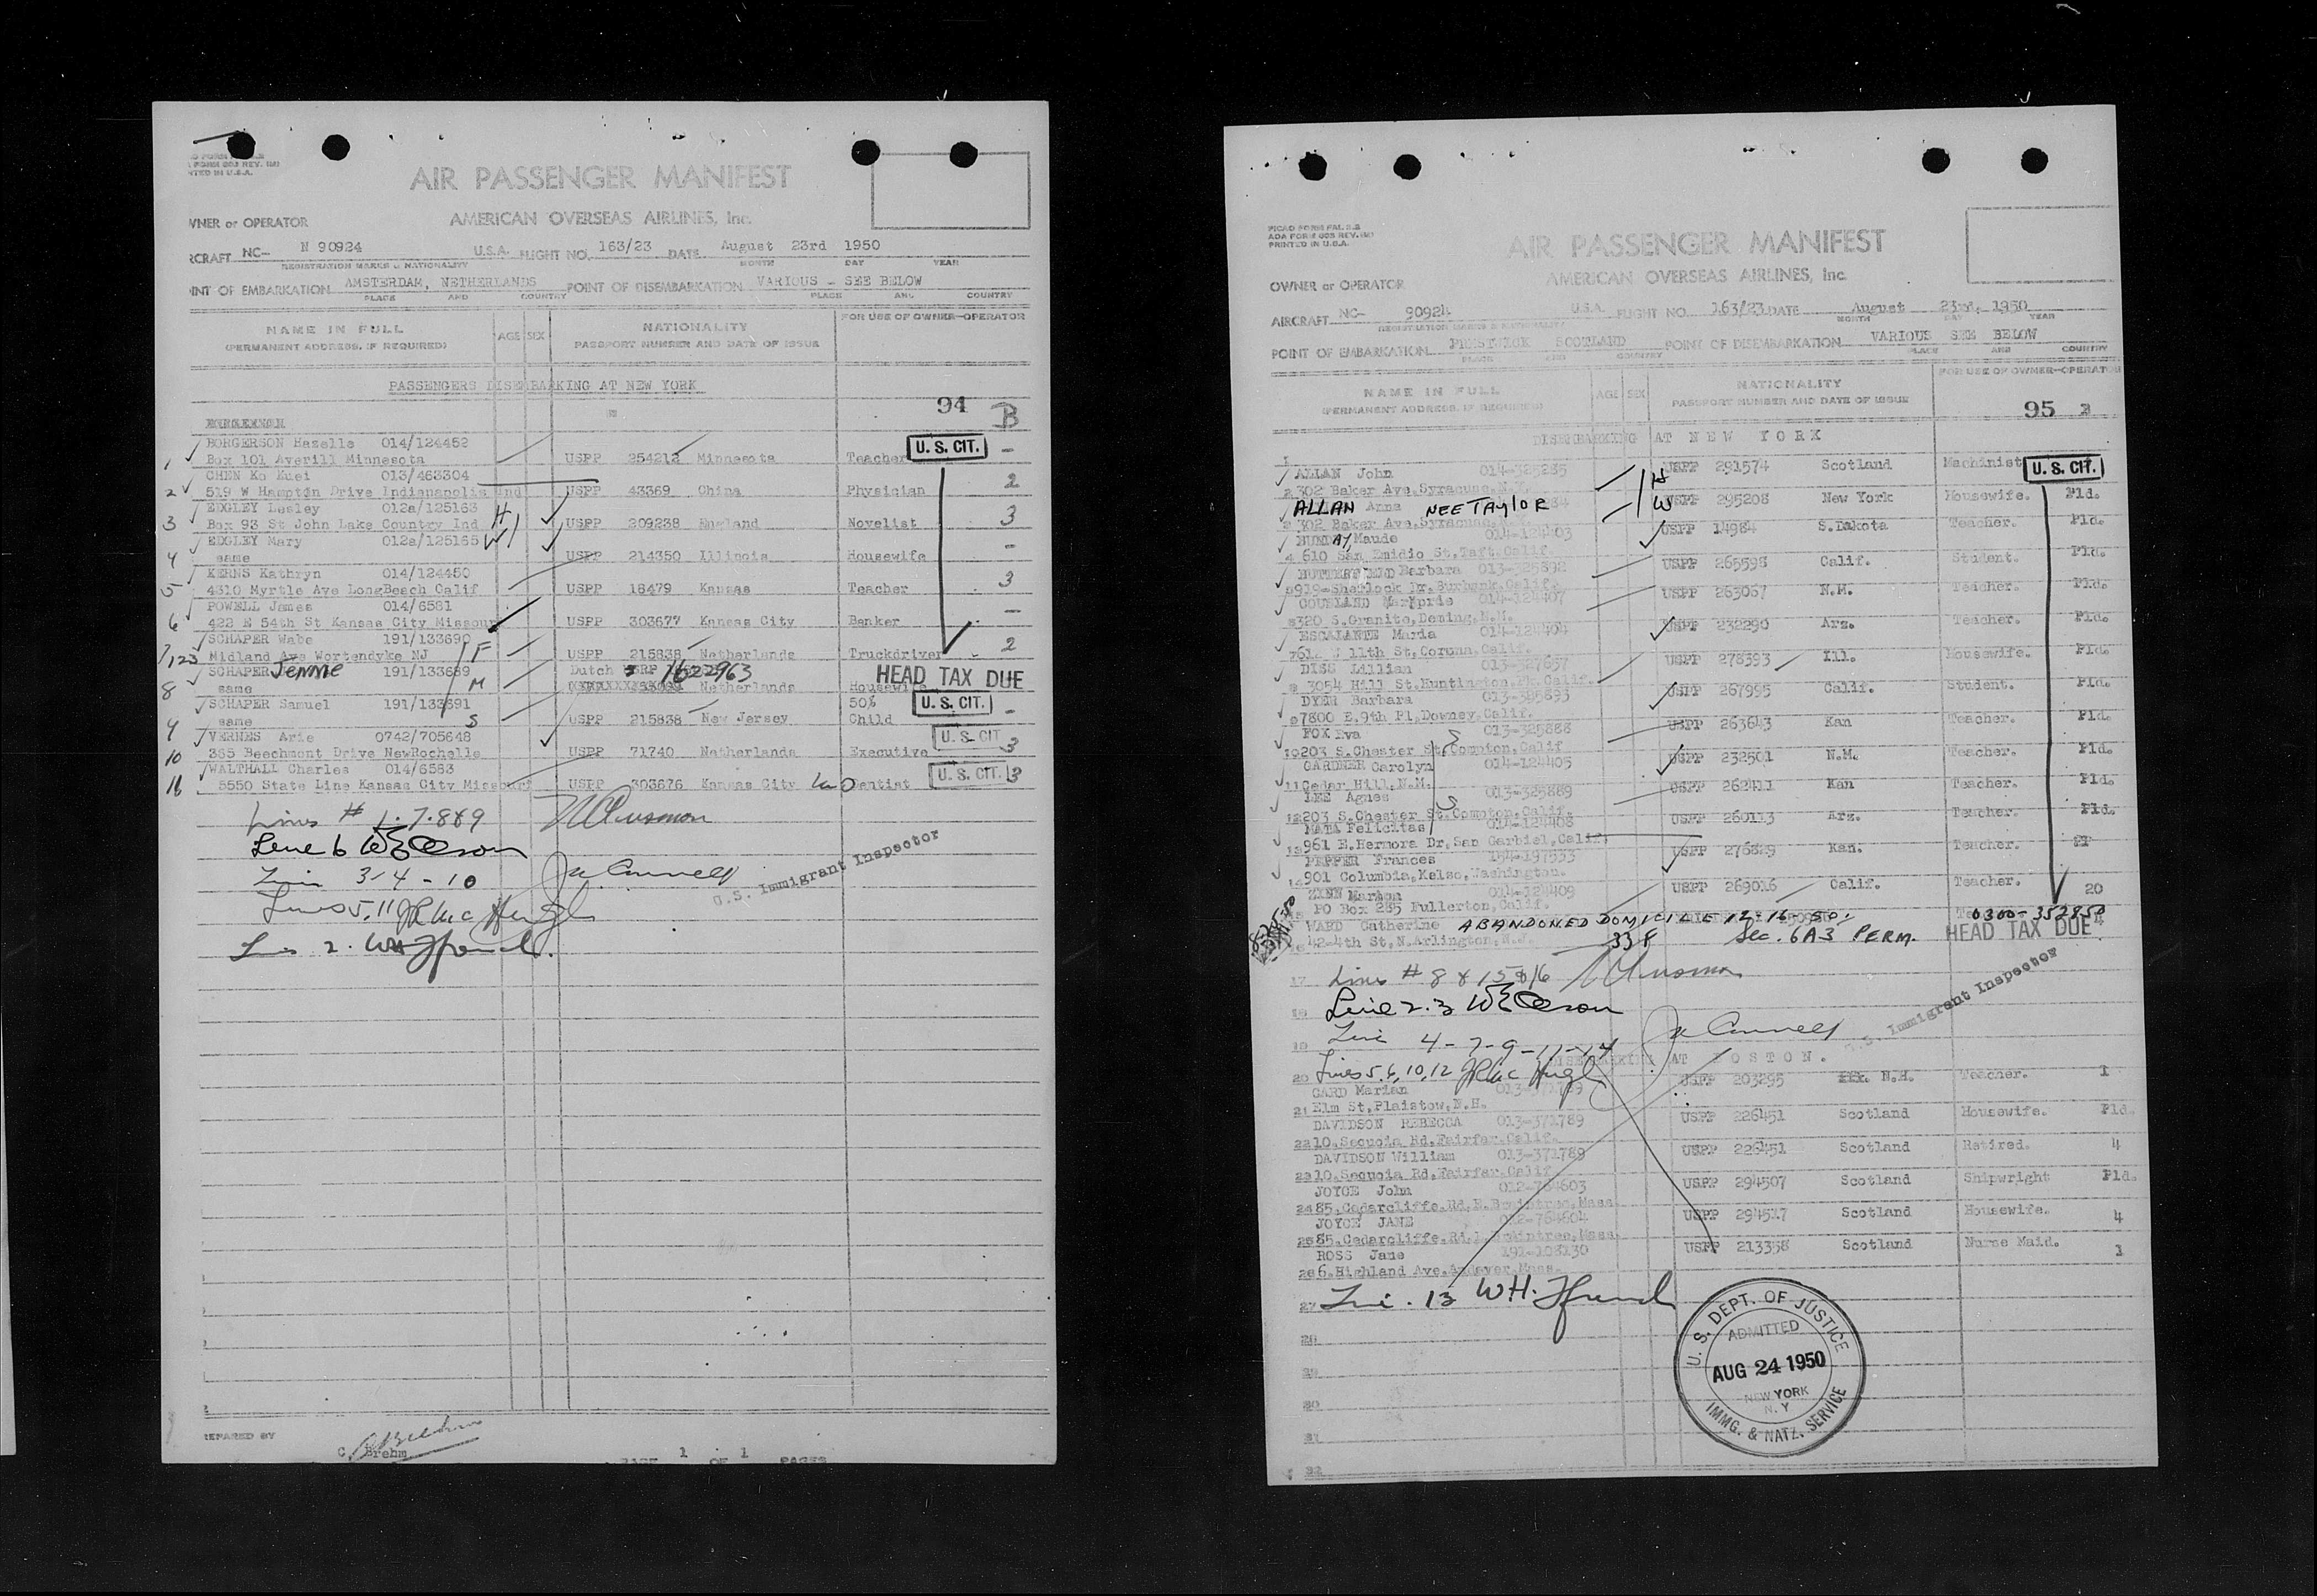 AIR PASSENGER MANIFEST
AMERICAN OVERSEAS AIRLINES, Inc.
WNER or OPERATOR
RCRAFT NC- N 90924 U.S.A. FLIGHT NO. 163/23 DATE August 23rd 1950
REGISTRATION MARKS & NATIONALITY MONTH DAY YEAR
INT OF EMBARKATION AMSTERDAM, NETHERLANDS POINT OF DISEMBARKATION VARIOUS - SEE BELOW
PLACE AND COUNTRY PLACE AND COUNTRY
NAME IN FULL
(PERMANENT ADDRESS, IF REQUIRED)
AGE SEX
NATIONALITY
PASSPORT NUMBER AND DATE OF ISSUE
FOR USE OF OWNER-OPERATOR
PASSENGERS DISEMBARKING AT NEW YORK
94 B
BORGERSON Hazelle 014/124452 U. S. CIT.
1 Box 101 Averill Minnesota USPP 254212 Minnesota Teacher -
CHEN Ko Kuei 013/463304
2 519 W Hampton Drive Indianapolis Ind USPP 43369 China Physician 2
EDGLEY Lesley 012a/125163 H
3 Box 93 St John Lake Country Ind USPP 209238 England Novelist 3
EDGLEY Mary 012a/125165 W
4 same USPP 214350 Illinois Housewife -
KERNS Kathryn 014/124450
5 4310 Myrtle Ave LongBeach Calif USPP 18479 Kansas Teacher 3
POWELL James 014/6581
6 422 E 54th St Kansas City Missour USPP 303677 Kansas City Banker -
SCHAPER Wabe 191/133690 F
7 Midland Ave Wortendyke NJ USPP 215838 Netherlands Truckdriver 2
SCHAPER Jennie 191/133689 Dutch 1622963 HEAD TAX DUE
8 same M Netherlands Housewife
SCHAPER Samuel 191/133691 50% U. S. CIT.
9 same S USPP 215838 New Jersey Child -
VERNES Arie 0742/705648 U. S. CIT
10 385 Beechmont Drive NewRochelle USPP 71740 Netherlands Executive 3
WALTHALL Charles 014/6583 U. S. CIT.
5550 State Line Kansas City Missouri USPP 303676 Kansas City Dentist 3
Lines # 1.7.8&9
Line 6
3-4-10
Lines 5, 11
2.
U.S. Immigrant Inspector
EPARED BY
C. Brehm
PAGE 1 OF 1 PAGES
PICAO FORM FAL 2.3
ADA FORM 003 REV. (M)
PRINTED IN U.S.A.
AIR PASSENGER MANIFEST
AMERICAN OVERSEAS AIRLINES, Inc.
OWNER or OPERATOR
AIRCRAFT NC- 90924 U.S.A. FLIGHT NO. 163/23 DATE August 23rd, 1950
REGISTRATION MARKS & NATIONALITY MONTH DAY YEAR
POINT OF EMBARKATION PRESTWICK SCOTLAND POINT OF DISEMBARKATION VARIOUS SEE BELOW
PLACE AND COUNTRY PLACE AND COUNTRY
NAME IN FULL
(PERMANENT ADDRESS, IF REQUIRED)
AGE SEX
NATIONALITY
PASSPORT NUMBER AND DATE OF ISSUE
FOR USE OF OWNER-OPERATOR
95
DISEMBARKING AT NEW YORK
ALLAN John 014-325235 H USPP 291574 Scotland Machinist U. S. CIT.
302 Baker Ave, Syracuse, N.Y.
ALLAN Anna NEE TAYLOR W USPP 295208 New York Housewife. Pld.
302 Baker Ave, Syracuse
Maude 014-124403 USPP 14984 S.Dakota Teacher. Pld.
4 610 San Emidio St, Taft, Calif.
Barbara USPP 265598 Calif. Student. Pld.
Burbank, Calif.
014-124407 USPP 263067 N.M. Teacher. Pld.
320 S. Granite, Deming, N.M.
ESCALANTE Maria 014-124404 USPP 232290 Arz. Teacher. Pld.
11th St, Corona, Calif.
DISS Lillian 013-327657 USPP 278393 Ill. Housewife. Pld.
3054 Hill St, Huntington Pk, Calif.
DYER Barbara 013-325893 USPP 267995 Calif. Student. Pld.
7800 E. 9th Pl, Downey, Calif.
FOX Eva 013-325888 USPP 263643 Kan Teacher. Pld.
10 203 S. Chester St, Compton, Calif
GARDNER Carolyn 014-124405 USPP 232501 N.M. Teacher. Pld.
11 Cedar Hill, N.M.
LEE Agnes 013-325889 USPP 262411 Kan Teacher. Pld.
12 203 S. Chester St. Compton, Calif.
MATA Felicitas 014-124408 USPP 260113 Arz. Teacher. Pld.
13 961 E. Hermora Dr, San Garbiel, Calif.
PEPPER Frances 154-197533 USPP 276829 Kan. Teacher.
14 901 Columbia, Kelso, Washington.
ZANN Marion 014-124409 USPP 269016 Calif. Teacher. 20
PO Box 285 Fullerton, Calif.
WARD Catherine ABANDONED DOMICILE 12-16-50. 0300-352850
42-4th St, N. Arlington, N.J. 33 F Sec. 6A3 PERM. HEAD TAX DUE
17 Lines # 8 & 15 & 16
18 Line 2.3
19 4-7-9-11-14
AT BOSTON.
20 Lines 5, 6, 10, 12
U.S. Immigrant Inspector
CARD Marian USPP 203295 N.H. Teacher. 1
21 Elm St, Plaistow, N.H.
DAVIDSON REBECCA 013-371789 USPP 226451 Scotland Housewife. Pld.
22 10, Sequoia Rd, Fairfax, Calif.
DAVIDSON William 013-371789 USPP 226451 Scotland Retired. 4
23 10, Sequoia Rd, Fairfax, Calif
JOYCE John 012-764603 USPP 294507 Scotland Shipwright Pld.
24 85, Cedarcliffe, Rd, E. Braintree, Mass
JOYCE JANE 012-764604 USPP 294517 Scotland Housewife. 4
25 85, Cedarcliffe, Rd, E. Braintree, Mass
ROSS Jane 191-108130 USPP 213358 Scotland Nurse Maid. 1
26 6, Highland Ave, Andover, Mass.
27 13 W.H.
28
29
30
31
32
U. S. DEPT. OF JUSTICE
ADMITTED
AUG 24 1950
NEW YORK
N. Y
IMMG. & NATZ. SERVICE